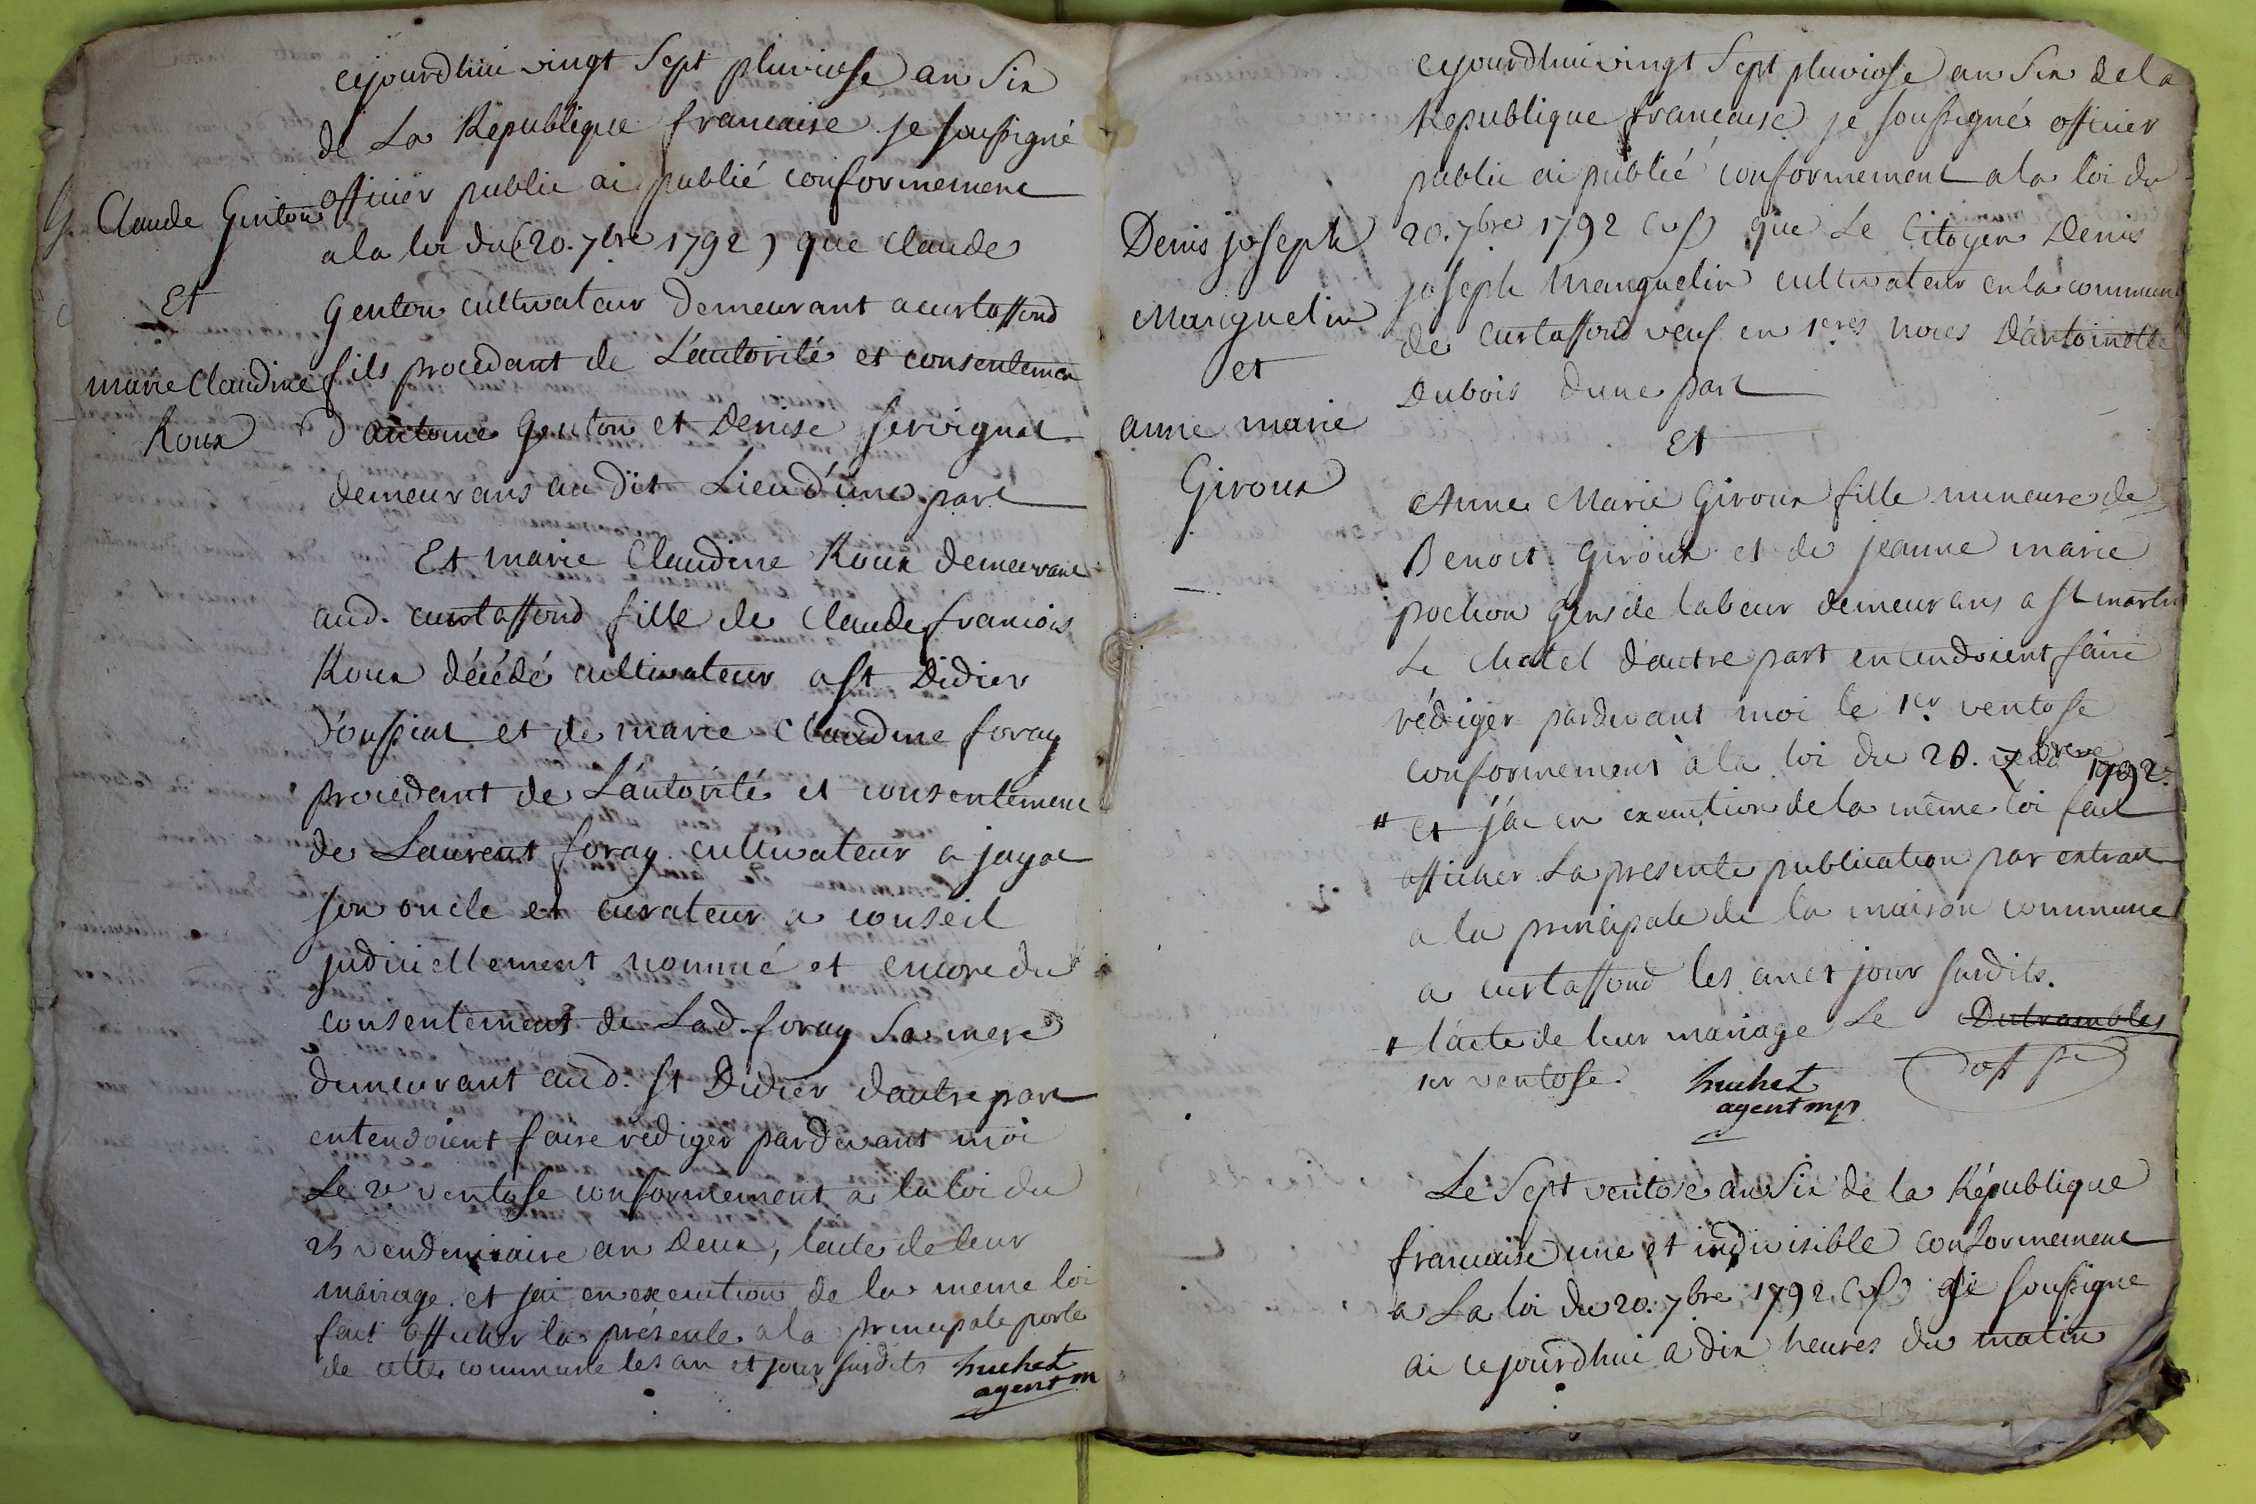 Claude Genton
Et
marie Claudine
Roux
cejourdhui vingt Sept pluviose an Six
de La République francaise je soussigné
officier public ai publié conformement
a la loi du (20. 7bre 1792) que Claude
Genton cultivateur demeurant a curtaffond
fils procedant de L'autorité et consentemen
d'antoine Genton et Denise Servignat
demeurans au dit Lieu d'une part
Et marie Claudine Roux demeurant
aud. curtaffond fille de Claude francois
Roux décédé cultivateur a St Didier
d'oussiat et de marie Claudine foray
procedant de L'autorité et consentement
de Laurent foray cultivateur a jayat
son oncle et curateur a conseil
judiciellement nommé et encore du
consentement de Lad. foray Sa mere
demeurant aud. St Didier d'autre part
entendoient faire rediger pardevant moi
Le 2e ventose conformement a la loi du
vendemiaire an Deux, l'acte de leur
mariage. et jai en execution de la meme loi
fait afficher la présente a la principale porte
de cette commune les an et jour susdits huchet
agent m
Denis joseph
Manguelin
et
anne marie
Giroux
cejourdhui vingt Sept pluviose an Six de la
Republique francaise je soussigné officier
public ai publié conformement a la loi du
20. 7bre 1792 (vs) que Le Citoyen Denis
joseph Manguelin cultivateur en la commune
de Curtaffond veuf en 1eres noces D'antoinette
Dubois d'une part
Et
Anne Marie Giroux fille mineure de
Benoit Giroux et de jeanne marie
pochon gens de labeur demeurans a St martin
Le Chatel d'autre part entendoient faire
rédiger pardevant moi le 1er ventose
conformement à la loi du 20. 7bre 1792.
# et j'ai en execution de la même loi fait
afficher La presente publication par extrait
a la principale de la maison commune
a curtaffond les an et jour susdits.
# l'acte de leur mariage Le Dutrambles
1er ventose. huchet off pc
agent mpl
Le Sept ventose an Six de la République
francaise une et indivisible conformement
a La loi du 20. 7bre 1792 (vs) je soussigne
ai cejourdhui a dix heures du matin